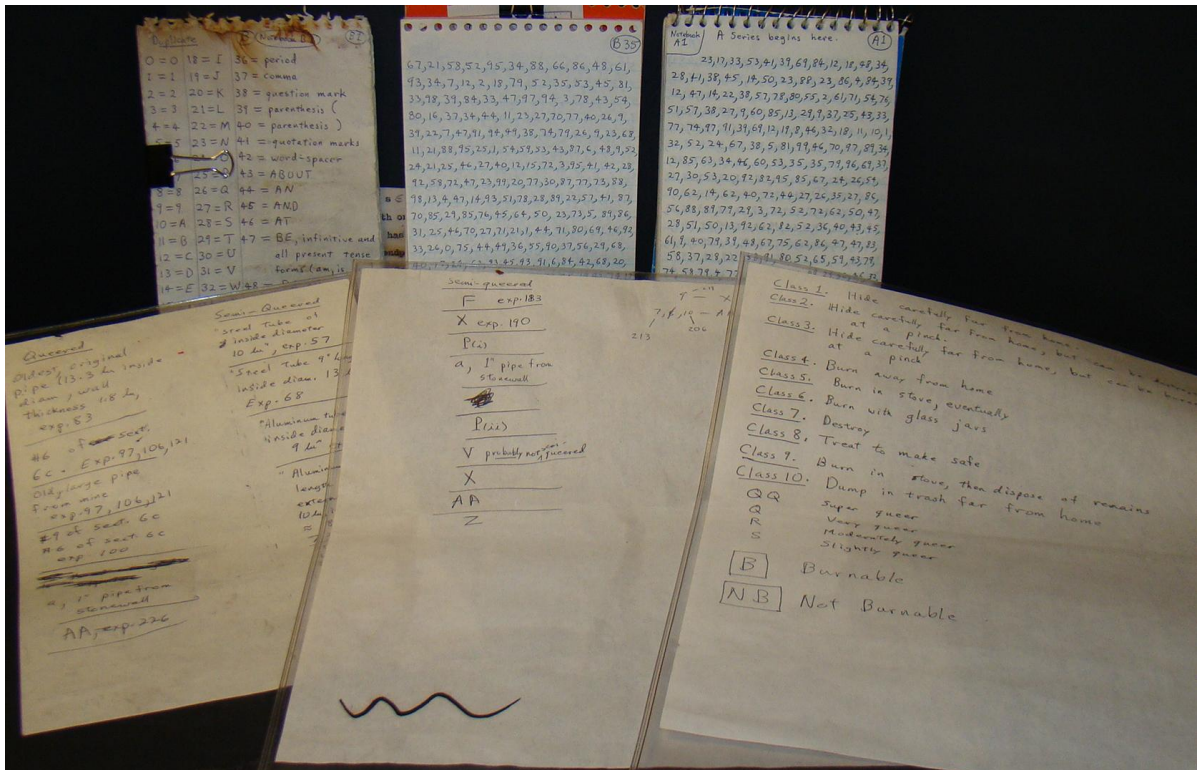 Duplicate
B1
0 = 0 18 = I 36 = period
1 = 1 19 = J 37 = comma
2 = 2 20 = K 38 = question mark
3 = 3 21 = L 39 = parenthesis (
4 = 4 22 = M 40 = parenthesis )
5 = 5 23 = N 41 = quotation marks
42 = word-spacer
43 = ABOUT
8 = 8 26 = Q 44 = AN
9 = 9 27 = R 45 = AND
10 = A 28 = S 46 = AT
11 = B 29 = T 47 = BE, infinitive and
12 = C 30 = U all present tense
13 = D 31 = V forms (am, is
14 = E 32 = W 48 =
B35
67,21,58,52,95,34,88,66,86,48,61,
93,34,7,12,2,18,79,52,35,53,45,81,
33,98,39,84,33,47,97,94,3,78,43,54,
80,16,37,34,44,11,23,27,70,77,40,26,9,
39,22,7,47,91,94,49,38,74,79,26,9,23,68,
11,21,88,95,25,1,54,59,53,43,87,6,48,9,52
24,21,25,46,27,40,12,15,72,3,95,41,42,28,
92,58,72,47,23,99,20,77,30,87,77,73,88,
98,13,4,47,14,93,51,78,28,89,22,57,41,87,
70,85,29,85,76,45,64,50,23,73,5,89,86,
31,25,46,70,27,71,21,1,44,71,80,69,46,92
33,26,0,75,44,49,36,55,90,37,56,29,68,
Notebook A1
A Series begins here.
A1
23,17,33,53,41,39,69,84,12,18,48,34,
28,41,38,45,14,50,23,88,23,86,4,84,39
12,47,14,22,38,57,78,80,55,2,61,71,54,76
51,57,38,27,9,60,85,13,29,9,37,25,43,33
77,74,97,91,39,69,12,19,8,46,32,18,11,10,1
32,52,24,67,38,5,81,99,46,70,97,89,34
12,85,63,34,46,60,53,35,35,79,96,69,37
27,30,53,20,92,82,95,85,67,24,26,54
90,62,14,62,40,72,44,27,26,35,27,86,
56,88,89,79,29,3,72,52,72,62,50,47
28,51,50,13,92,62,82,52,36,40,43,45
61,9,40,79,39,48,67,75,62,86,47,47,83
Queered
Oldest, original
pipe (13.5 Lu inside
diam, wall
thickness 1.8 Lu,
exp. 53
#6 of sect.
6c. Exp. 97, 106, 121
Old, large pipe
from mine
exp. 97, 106, 121
#9 of sect. 6c
#6 of sect. 6c
exp. 100
a, 1" pipe from
stonewall
AA, exp. 226
Semi-Queered
"Steel Tube of
inside diameter
10 Lu", exp. 57
"Steel Tube 9"
inside diam. 13
Exp. 68
"Aluminum tube
inside diam
9 Lu"
"Aluminum
length
10 Lu
Semi-queered
F exp. 183
X exp. 190
P(i)
a, 1" pipe from
stonewall
P(ii)
V probably not semi-queered
X
AA
Z
213
206
Class 1. Hide carefully far from home
Class 2. Hide carefully far from home, but can be
at a pinch.
Class 3. Hide carefully far from home, but can be
at a pinch
Class 4. Burn away from home
Class 5. Burn in stove, eventually
Class 6. Burn with glass jars
Class 7. Destroy
Class 8. Treat to make safe
Class 9. Burn in stove, then dispose of remains
Class 10. Dump in trash far from home
QQ Super queer
Q Very queer
R Moderately queer
S Slightly queer
B Burnable
N.B Not Burnable